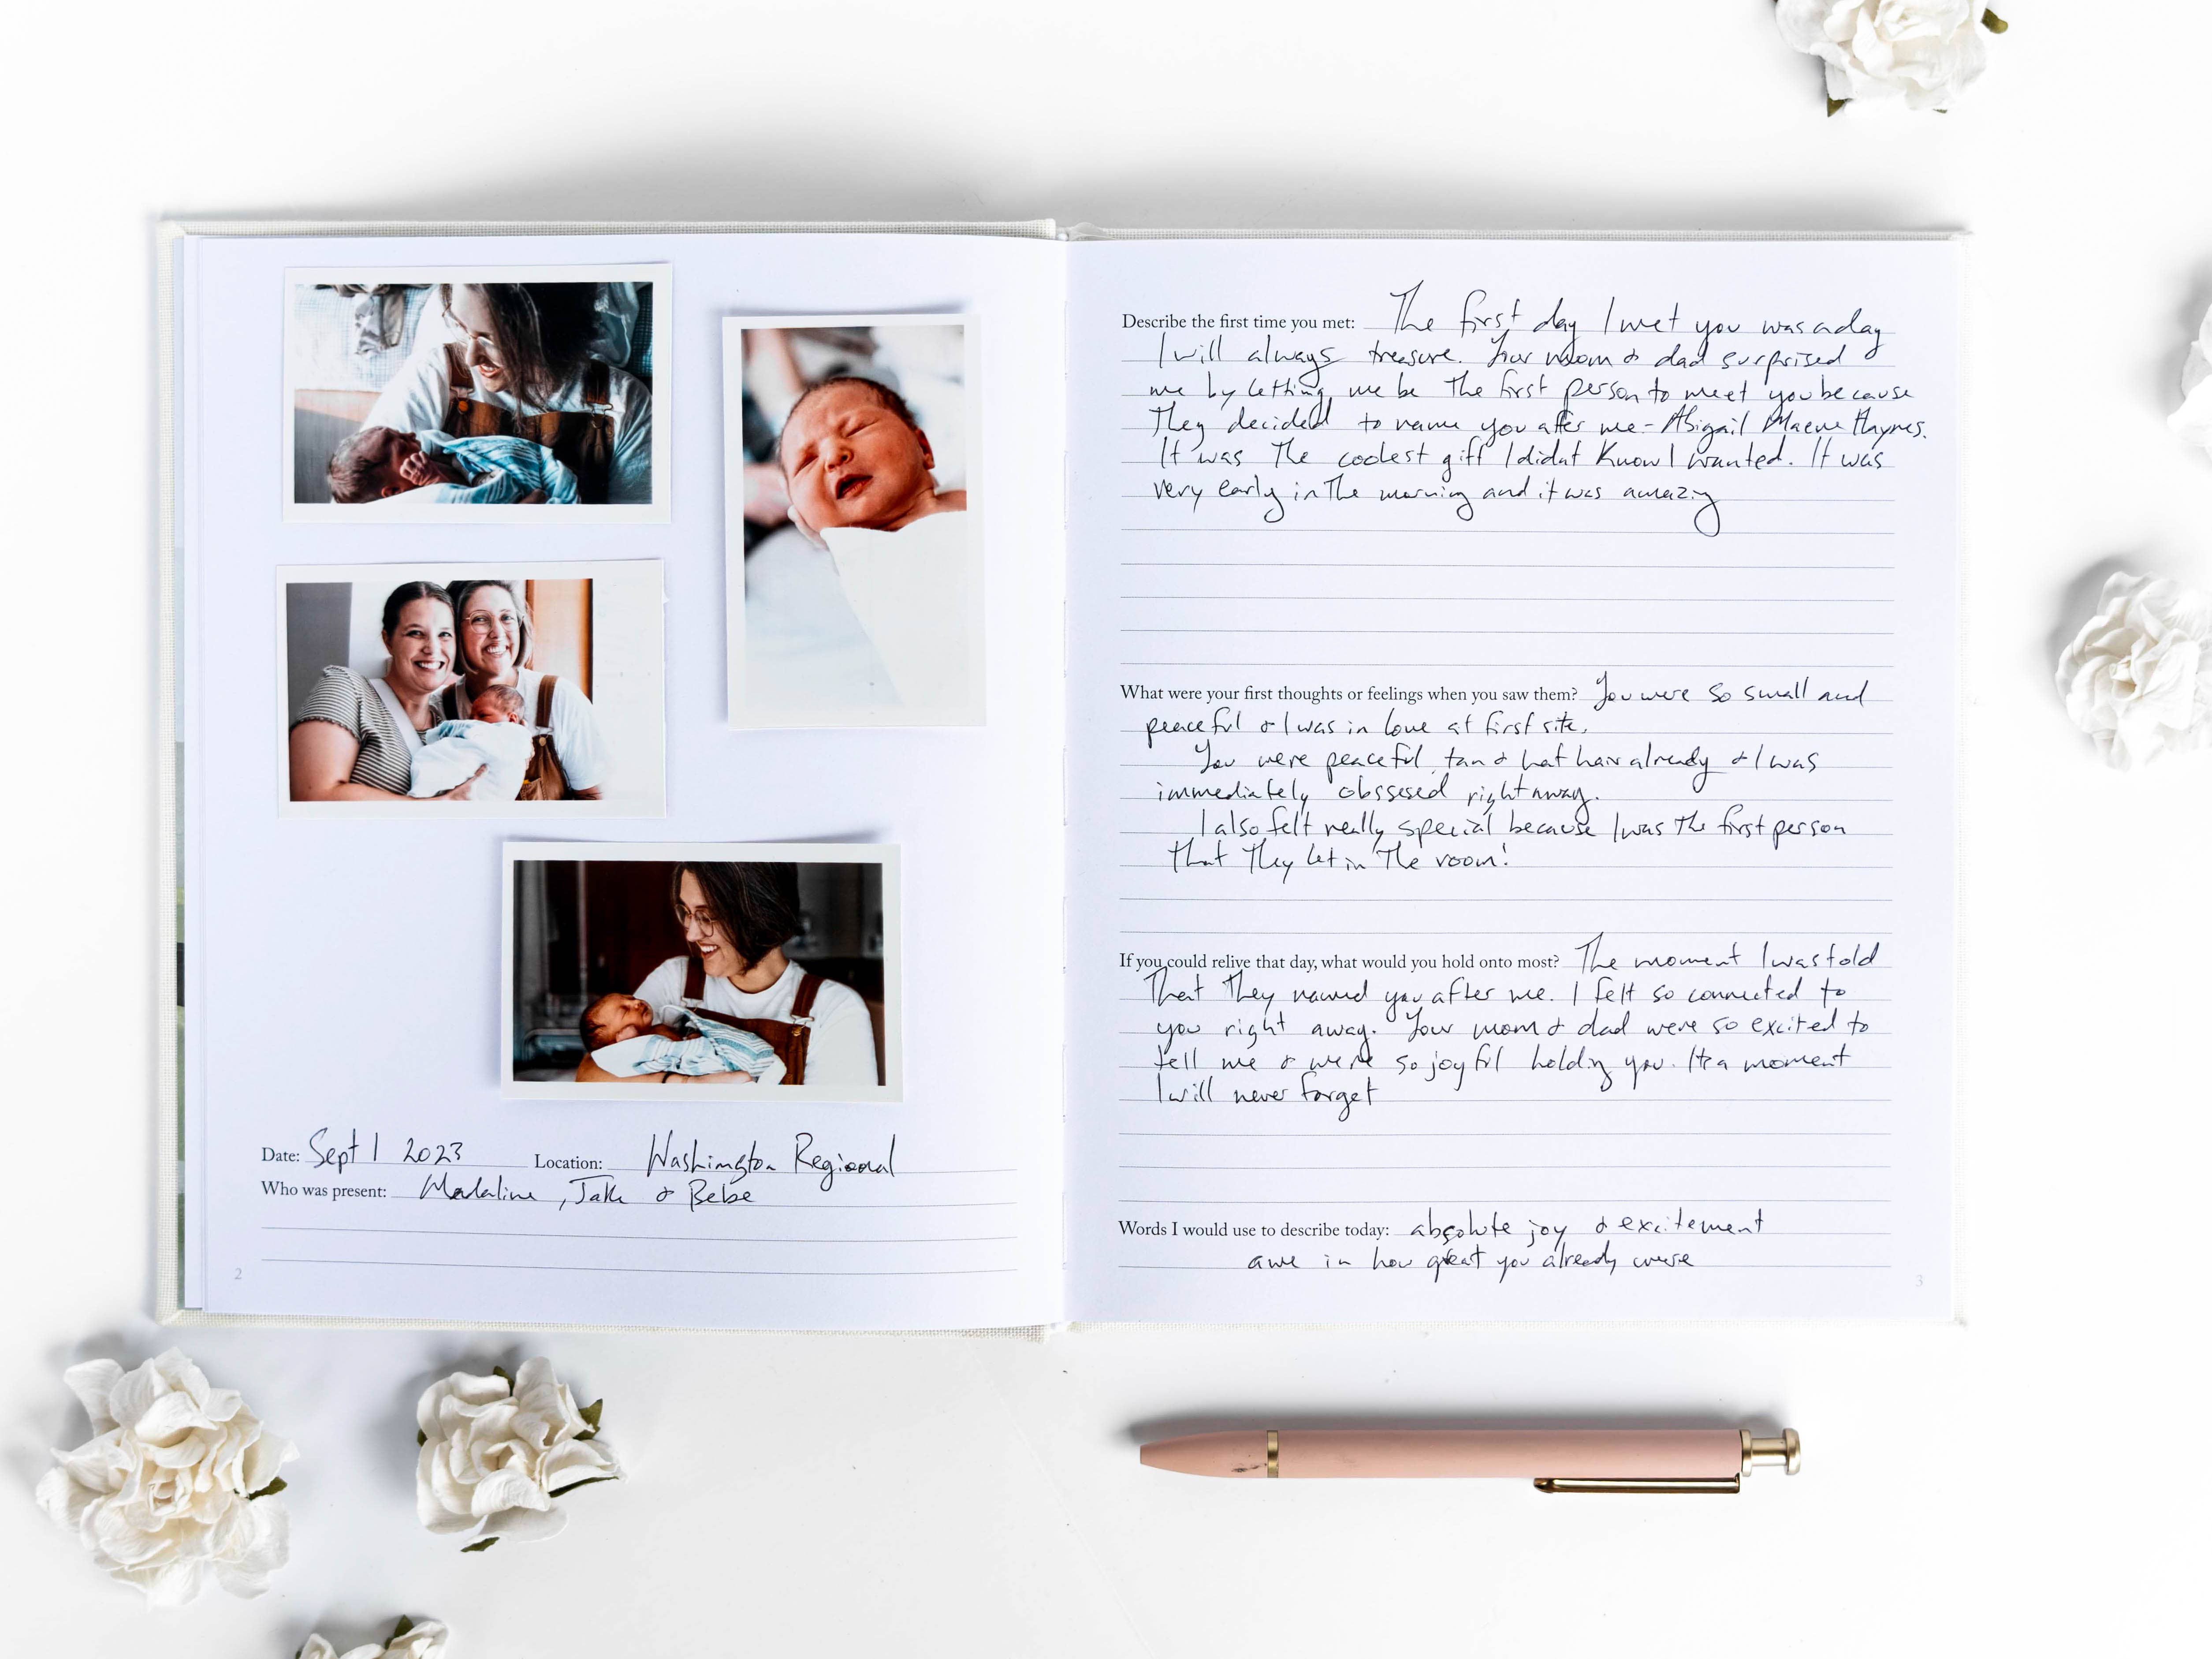 Date: Sept 1 2023 Location: Washington Regional
Who was present: Madaline, Jake & Bebe
2
Describe the first time you met: The first day I met you was a day
I will always treasure. Your mom & dad surprised
me by letting me be the first person to meet you because
they decided to name you after me - Abigail Maeve Haynes.
It was the coolest gift I didnt know I wanted. It was
very early in the morning and it was amazing
What were your first thoughts or feelings when you saw them? You were so small and
peaceful & I was in love at first site.
You were peaceful, tan & hat hair already & I was
immediately obssesed right away.
I also felt really special because I was the first person
that they let in the room!
If you could relive that day, what would you hold onto most? The moment I was told
that they named you after me. I felt so connected to
you right away. Your mom & dad were so excited to
tell me & were so joyful holding you. Its a moment
I will never forget
Words I would use to describe today: absolute joy & excitement
awe in how great you already were
3